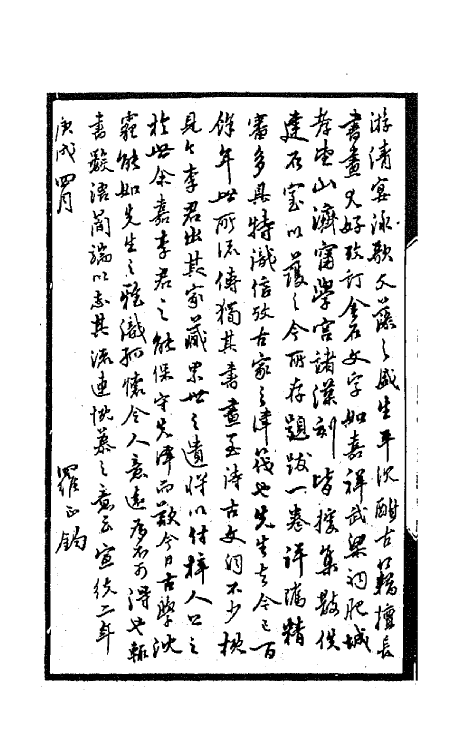 游清宴泳歌文藻之盛生平沈酣古籍擅長
書畫又好攷訂金石文字如嘉祥武梁祠肥城
孝堂山濟甯學宮諸漢刻皆搜集散佚
建石室以護之今所存題跋一卷詳瞻精
審多具特識信攷古家之津筏也先生去今已百
餘年世所流傳獨其書畫至詩古文詞不少概
見今李君出其家藏累世之遺將以付梓人公之
於世余嘉李君之能保守先澤而歎今日古學沈
霾能如先生之雅識孤懷令人意遠者不可得也輒
書數語簡端以志其流連忱慕之意云宣統二年
庚戌四月
羅正鈞